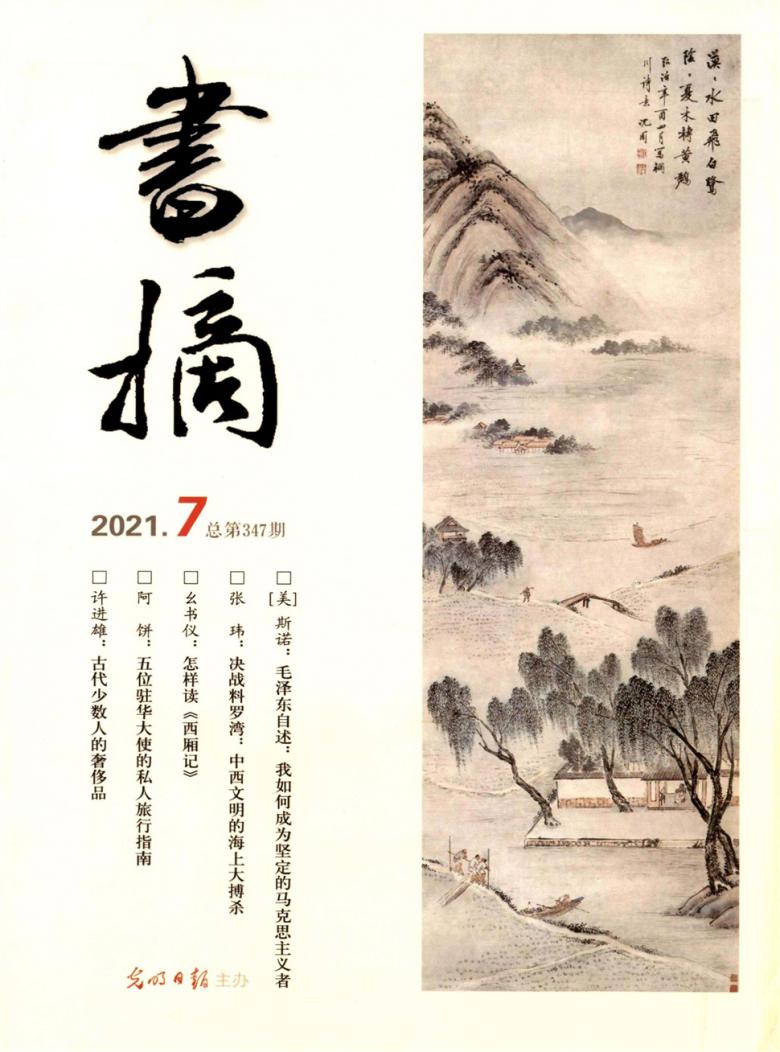 書摘
2021.7 总第347期
□[美] 斯诺：毛泽东自述：我如何成为坚定的马克思主义者
□张 玮：决战料罗湾：中西文明的海上大搏杀
□幺书仪：怎样读《西厢记》
□阿 饼：五位驻华大使的私人旅行指南
□许进雄：古代少数人的奢侈品
光明日报 主办
漠、水田飛白鷺
陰、夏木囀黃鸝
弘治辛酉四月寫輞
川詩意 沈周